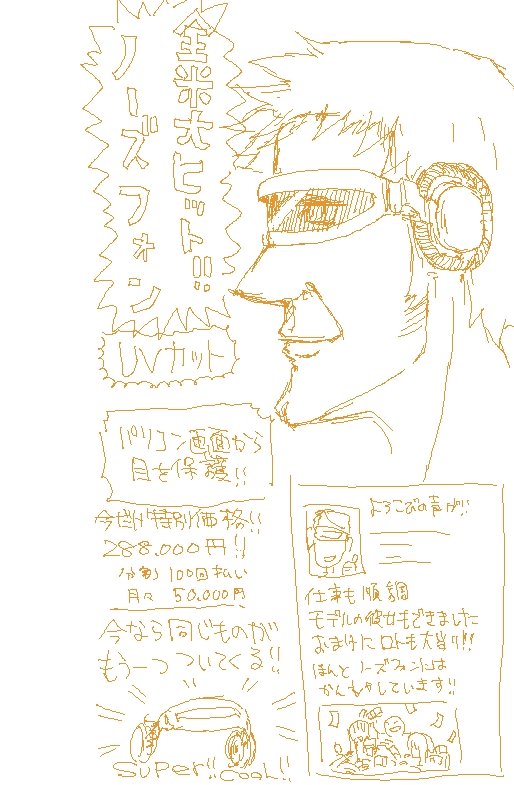 全米大ヒット!!
ノーズフォン
UVカット
パソコン画面から
目を保護!!
今だけ特別価格!!
288.000円!!
分割 100回払い
月々 50.000円
今なら同じものが
もう一つついてくる!!
SUPER!! COOL!!
よろこびの声が!!
仕事も順調
モデルの彼女もできました
おまけにロトも大当り!!
ほんとノーズフォンには
かんしゃしています!!